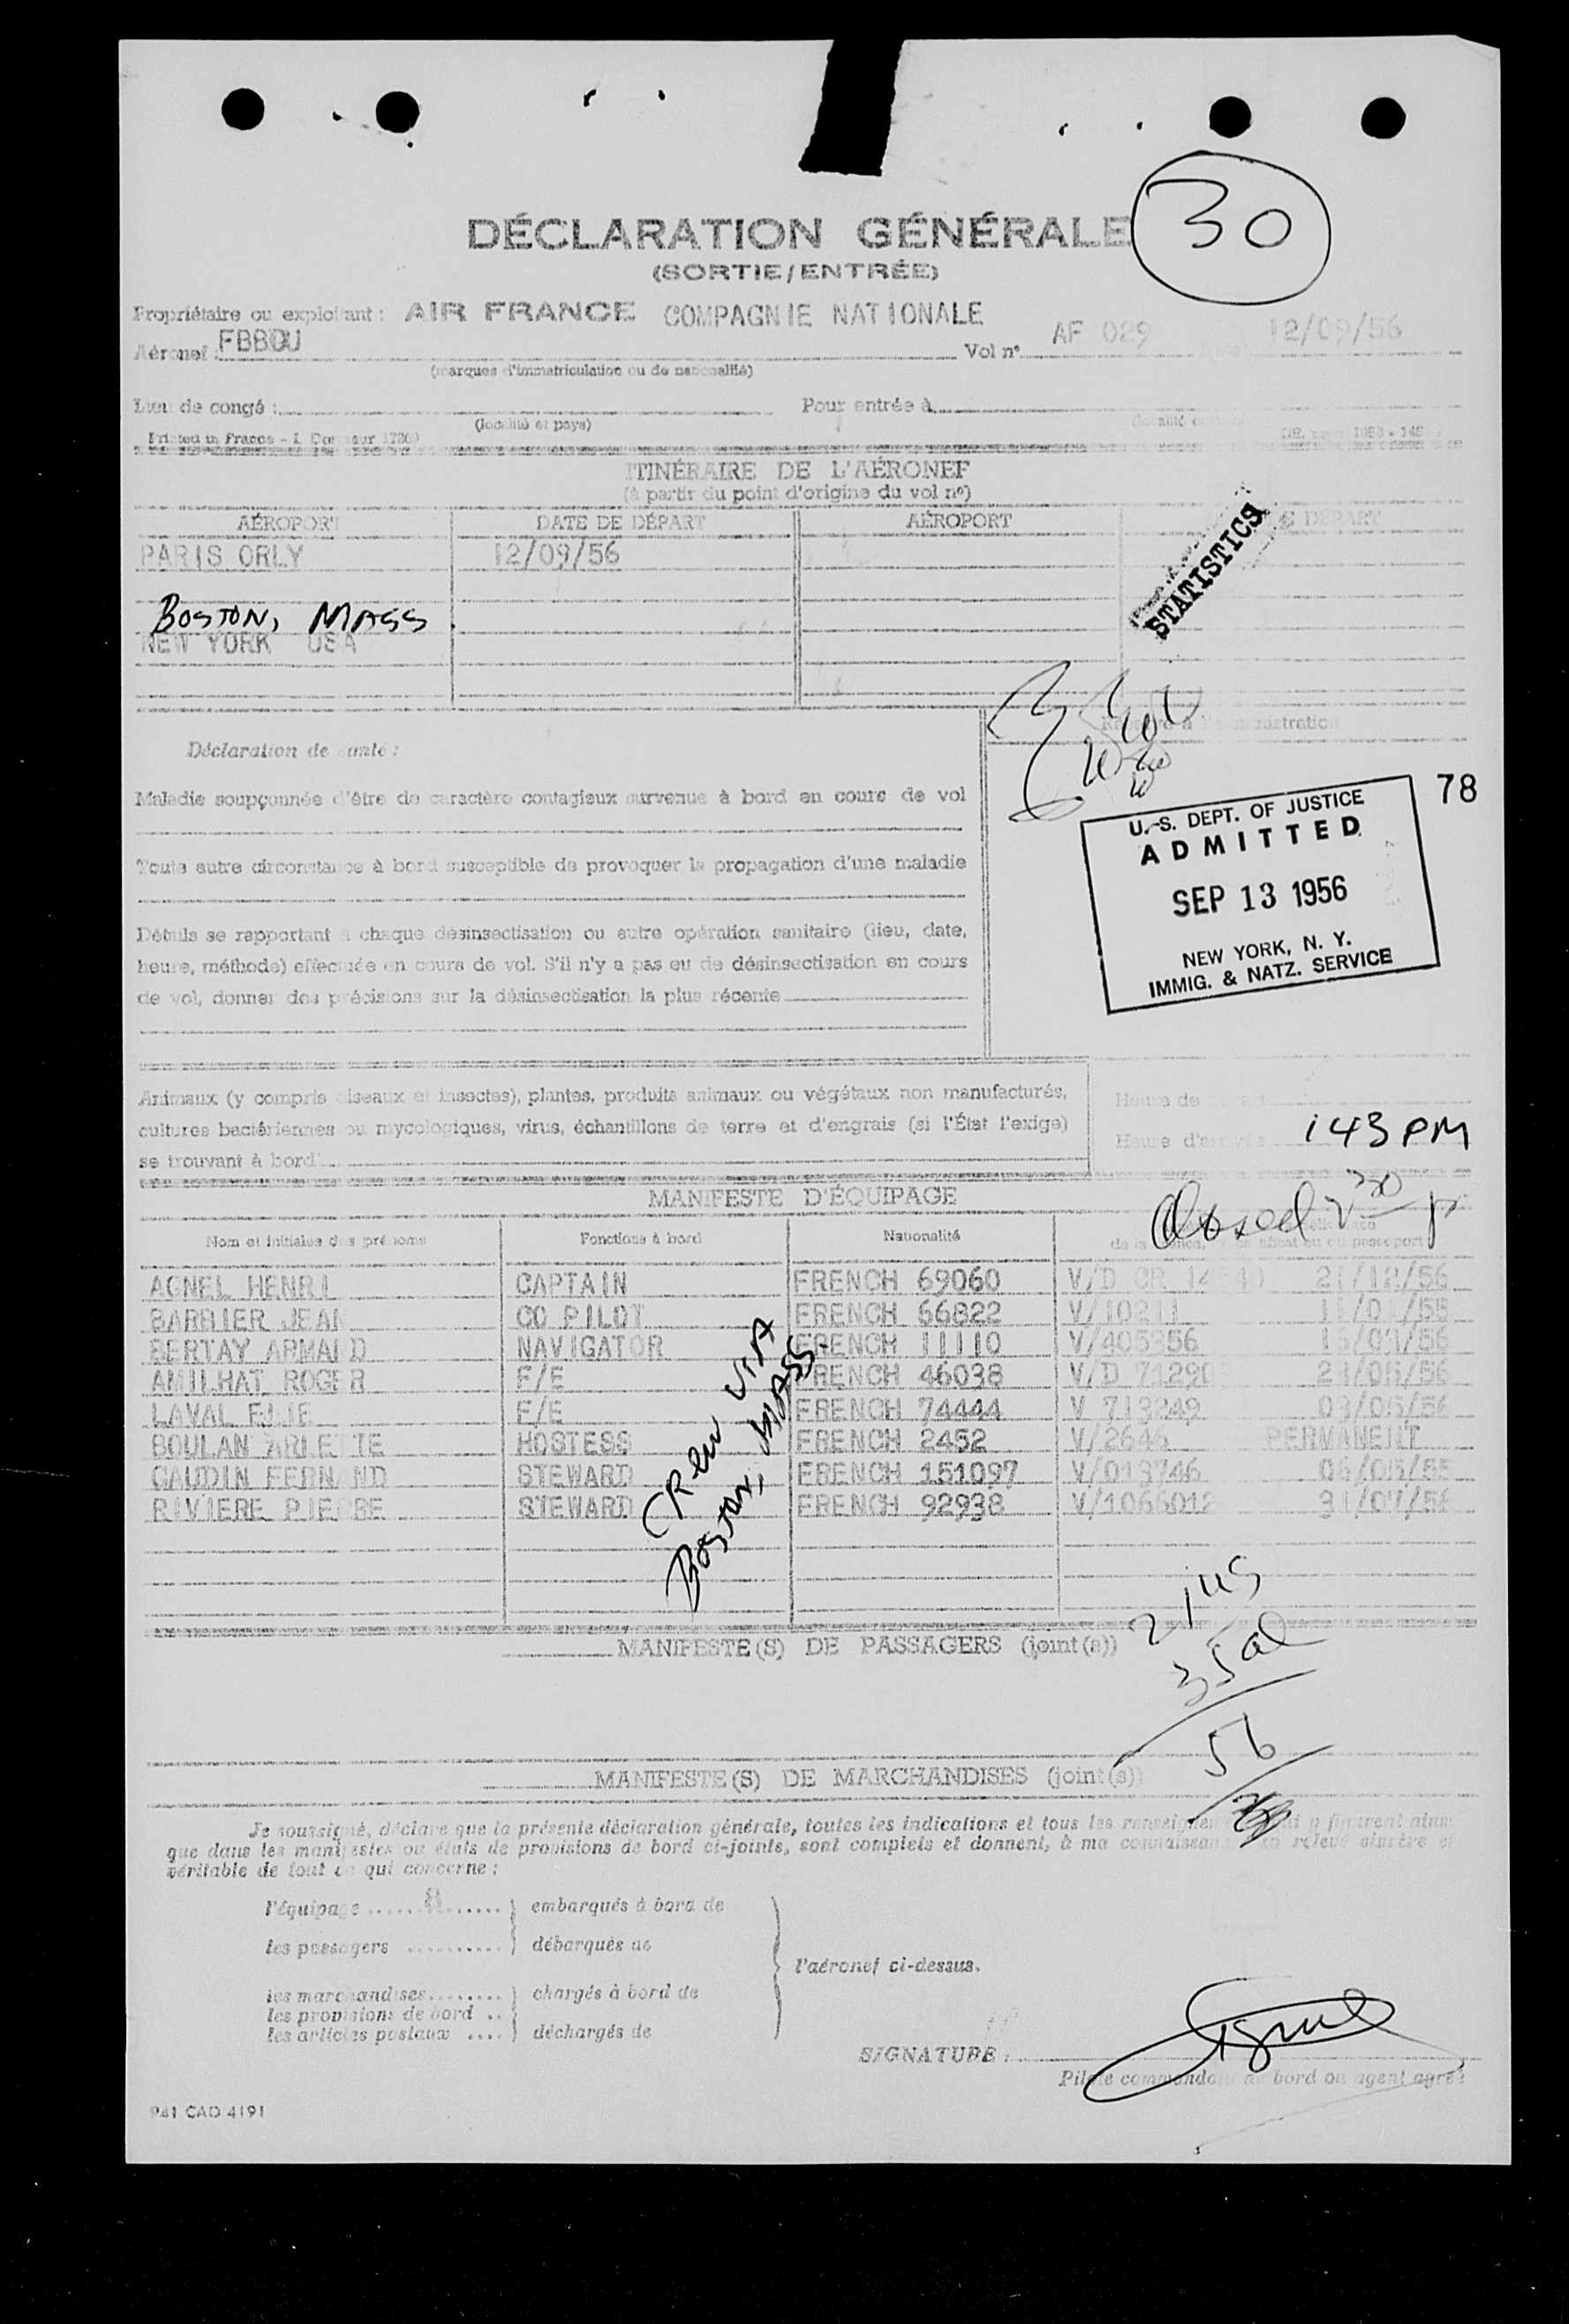 30
DÉCLARATION GÉNÉRALE
(SORTIE/ENTRÉE)
Propriétaire ou exploitant : AIR FRANCE COMPAGNIE NATIONALE
Aéronef : FBBDU Vol nº AF 029 12/09/56
(marques d'immatriculation ou de nationalité)
Lieu de congé : Pour entrée à
(localité et pays)
Printed in France
ITINÉRAIRE DE L'AÉRONEF
(à partir du point d'origine du vol nº)
AÉROPORT DATE DE DÉPART AÉROPORT DÉPART
PARIS ORLY 12/09/56
STATISTICS
BOSTON, MASS.
NEW YORK USA
Déclaration de santé :
Maladie soupçonnée d'être de caractère contagieux survenue à bord en cours de vol
78
U. S. DEPT. OF JUSTICE
ADMITTED
SEP 13 1956
NEW YORK, N. Y.
IMMIG. & NATZ. SERVICE
Toute autre circonstance à bord susceptible de provoquer la propagation d'une maladie
Détails se rapportant à chaque désinsectisation ou autre opération sanitaire (lieu, date,
heure, méthode) effectuée en cours de vol. S'il n'y a pas eu de désinsectisation en cours
de vol, donner des précisions sur la désinsectisation la plus récente
Animaux (y compris oiseaux et insectes), plantes, produits animaux ou végétaux non manufacturés,
cultures bactériennes ou mycologiques, virus, échantillons de terre et d'engrais (si l'État l'exige)
se trouvant à bord
Heure de
Heure d'arrivée 143 PM
MANIFESTE D'ÉQUIPAGE
Nom et initiales des prénoms Fonctions à bord Nationalité
AGNEL HENRI CAPTAIN FRENCH 69060 21/12/56
BARBIER JEAN CO PILOT FRENCH 66822
BERTAY ARMAND NAVIGATOR FRENCH 11110 V/405356
AMILHAT ROGER F/E FRENCH 46038 V/D 71290
LAVAL ELIE F/E FRENCH 74444 V 713249
BOULAN ARLETTE HOSTESS FRENCH 2452 V/2646 PERMANENT
GAUDIN FERNAND STEWARD FRENCH 151097 V/013746
RIVIERE PIERRE STEWARD FRENCH 92938 V/1066012
CREW VIA
BOSTON, MASS.
MANIFESTE(S) DE PASSAGERS (joint(s))
56
MANIFESTE(S) DE MARCHANDISES (joint(s))
Je soussigné, déclare que la présente déclaration générale, toutes les indications et tous les
que dans les manifestes ou états de provisions de bord ci-joints, sont complets et donnent, à ma connaissance
véritable de tout ce qui concerne :
l'équipage 8 embarqués à bord de
les passagers débarqués de
l'aéronef ci-dessus.
les marchandises chargés à bord de
les provisions de bord
les articles postaux déchargés de
SIGNATURE :
Pilote commandant de bord ou agent agréé
941 CAD 4191